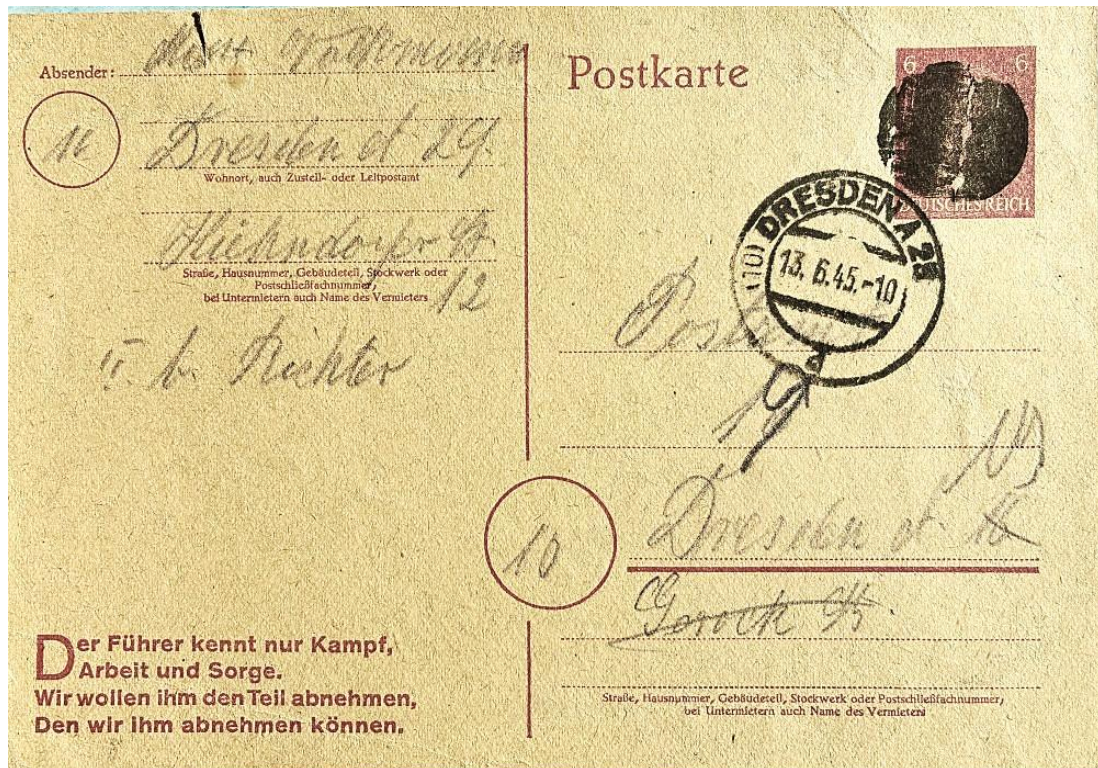 Absender:
10
Dresden A 29
Wohnort, auch Zustell- oder Leitpostamt
Straße, Hausnummer, Gebäudeteil, Stockwerk oder
Postschließfachnummer,
bei Untermietern auch Name des Vermieters
12
b. Richter
Der Führer kennt nur Kampf,
Arbeit und Sorge.
Wir wollen ihm den Teil abnehmen,
Den wir ihm abnehmen können.
Postkarte
6 6
DEUTSCHES REICH
(10) DRESDEN A 25
13.6.45.-10
a
Postamt
19
10
Dresden A
Straße, Hausnummer, Gebäudeteil, Stockwerk oder Postschließfachnummer,
bei Untermietern auch Name des Vermieters